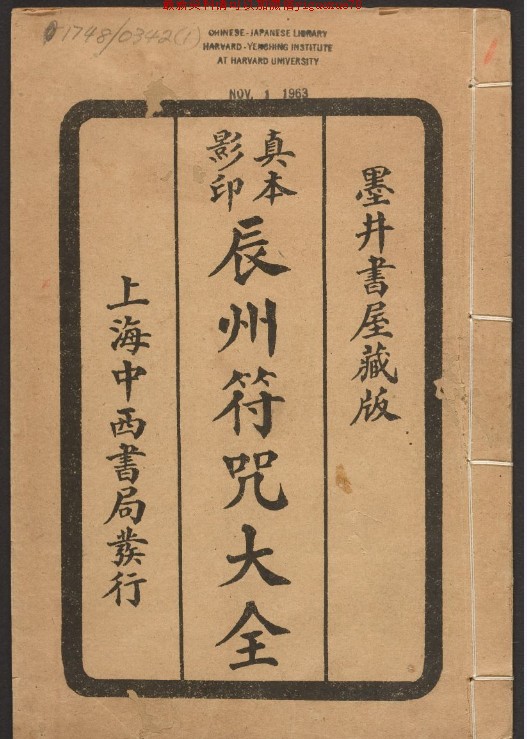 1748/0342(1)
CHINESE-JAPANESE LIBRARY
HARVARD-YENCHING INSTITUTE
AT HARVARD UNIVERSITY
NOV 1 1963
墨井書屋藏版
真本
影印
辰州符咒大全
上海中西書局發行